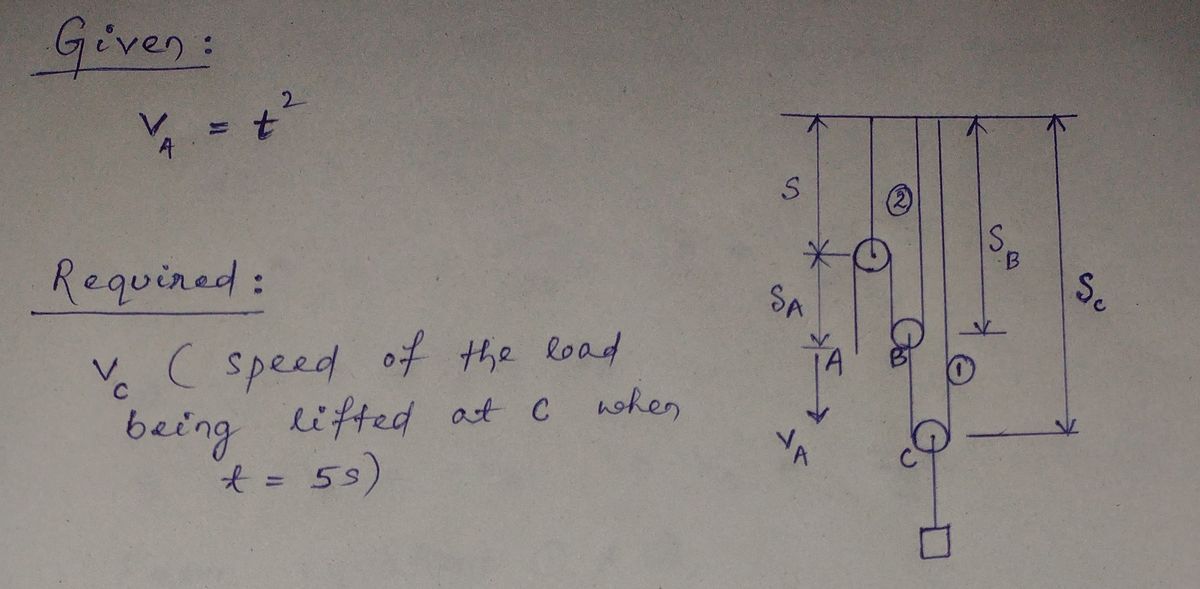 Given :
V_A = t²
Required :
V_c ( speed of the load
being lifted at C when
t = 5s)
S
②
S_B
S_A
S_c
A
B
①
V_A
C